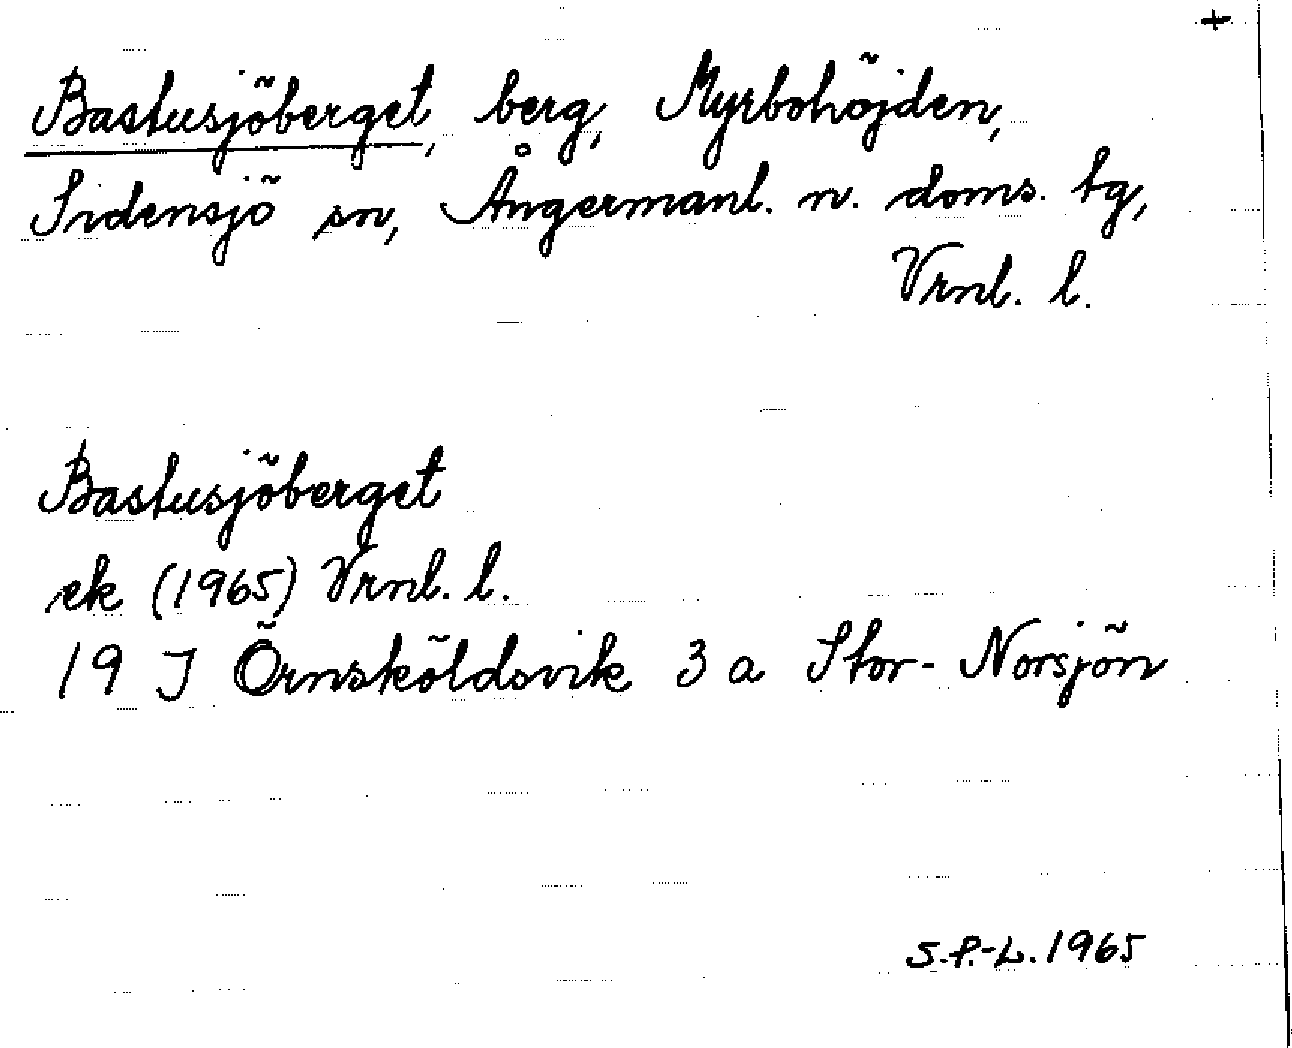 +
Bastusjöberget, berg, Myrbohöjden,
Sidensjö sn, Ångermanl. n. doms. tg,
Vrnl. l.
Bastusjöberget
ek (1965) Vrnl. l.
19 J Örnsköldsvik 3 a Stor-Norsjön
S.P.-L. 1965